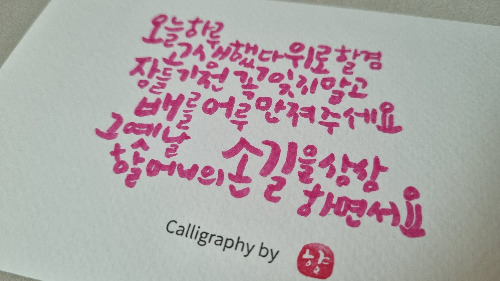 오늘하루
고생했다 위로할겸
잠들기전 꼭 잊지말고
배를 어루만져주세요
그 옛날
할머니의 손길을 상상
하면서요
Calligraphy by 향